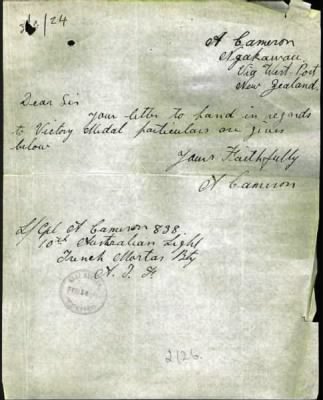 3/2/24
A Cameron
Ngakawau
Via West-Port
New Zealand.
Dear Sir
Your letter to hand in regards
to Victory Medal particulars are given
below
Yours Faithfully
A Cameron
L/Cpl A Cameron 838.
10th Australian Light
Trench Mortar Bty
A. I. F
2126.